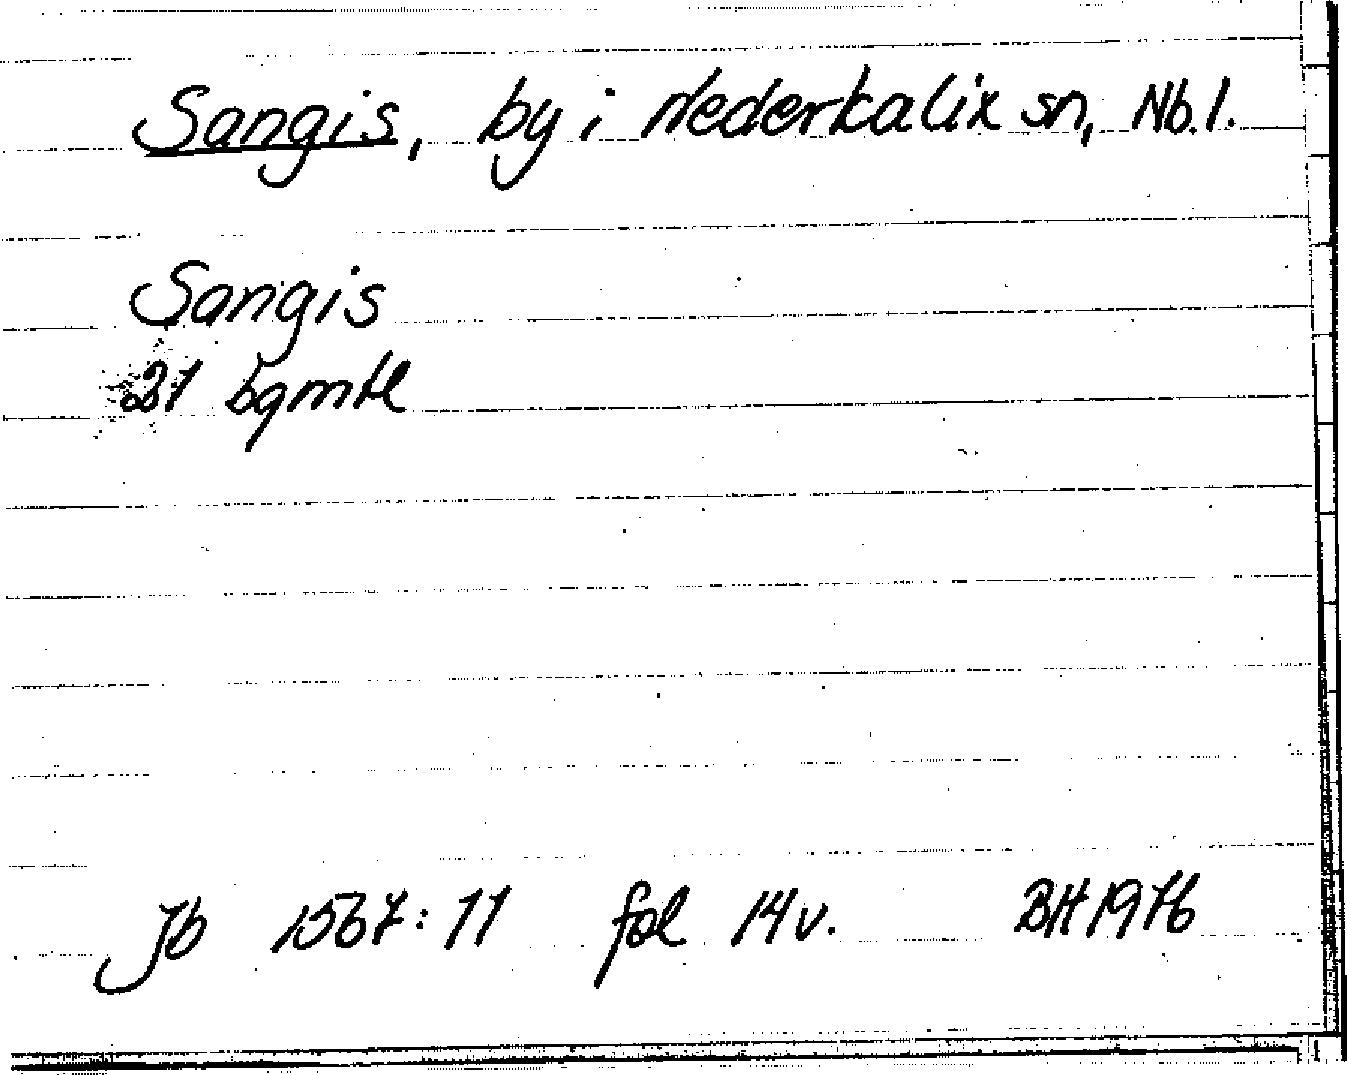 Sangis, by i Nederkalix sn, Nb.l.
Sangis
21 bgmtl
Jb 1567:11 fol 14v. BH 1976